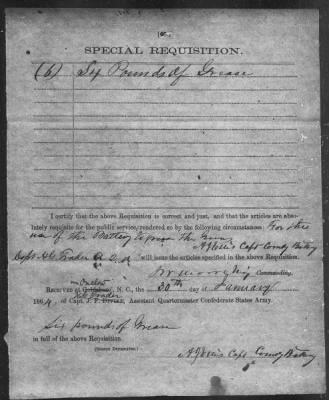 SPECIAL REQUISITION.
(6) Six Pounds Of Grease
I certify that the above Requisition is correct and just, and that the articles are abso-
lutely requisite for the public service, rendered so by the following circumstances: For the
use of this Battery to grease the Guns
Capt Comdg Batry
Capt A. Q. M. will issue the articles specified in the above Requisition.
Commanding.
Received at N. C., the 30th day of January
1864, of Capt. J. F. Assistant Quartermaster Confederate States Army.
Six pounds of Grease
in full of the above Requisition.
(Signed Duplicates.)
Capt Comdg Batry